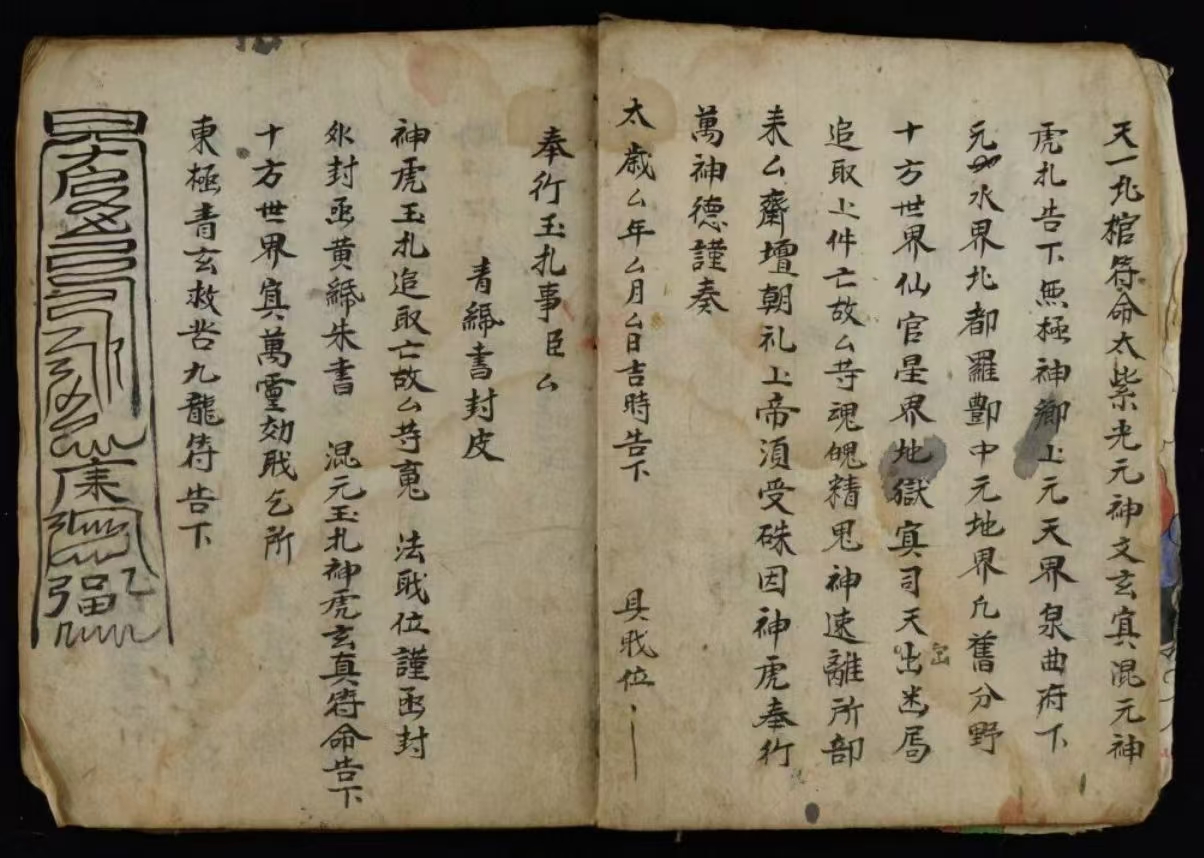 天一北棺符命太紫光元神文玄寘混元神
虎札告下無極神鄉上元天界泉曲府下
元水界北都羅酆中元地界凢舊分野
十方世界仙官星界地獄寘司天出幽局
追取上件亡故厶䓁魂魄精鬼神速離所部
来厶齋壇朝礼上帝湏受硃因神虎奉行
萬神德謹奏
太歲厶年厶月厶日吉時告下 具戝位
奉行玉扎事臣厶
青䋛書封皮
神虎玉扎追取亡故厶䓁䰟 法戝位謹函封
外封函黄䋛朱書 混元玉扎神虎玄真符命告下
十方世界寘萬靈効戝乞所
東極青玄救苦九龍符告下